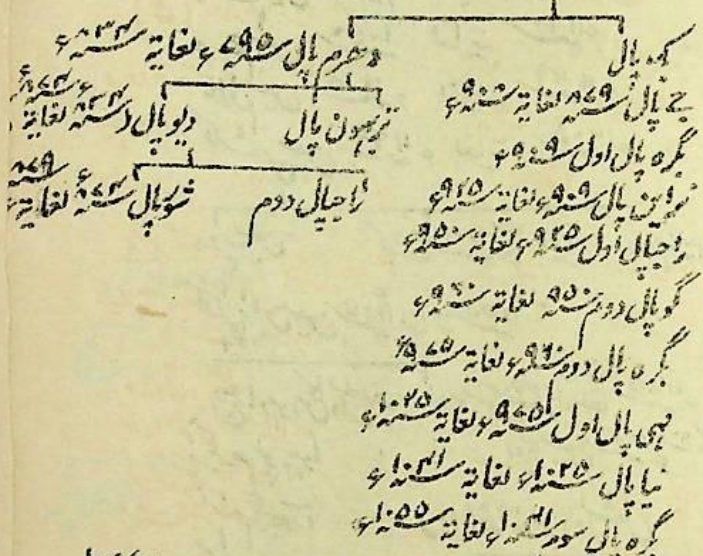 دھرم پال ۷۹۵ء لغایۃ ۸۳۴ء
تربھون پال
دیوپال ۸۳۴ء لغایۃ ۸۷۴ء
راجپال دوم
شورپال ۸۷۴ء لغایۃ ۸۷۹ء
بکہ پال
جے پال ۸۷۹ء لغایۃ ۹۰۰ء
بگرہ پال اول ۹۰۹ء
نراین پال ۹۰۹ء لغایۃ ۹۲۵ء
راجپال اول ۹۲۵ء لغایۃ ۹۵۰ء
گوپال دوم ۹۵۰ لغایۃ ۹۶۰ء
بگرہ پال دوم ۹۶۰ء لغایۃ ۹۷۵ء
مہی پال اول ۹۷۵ء لغایۃ ۱۰۲۵ء
نیاپال ۱۰۲۵ء لغایۃ ۱۰۴۱ء
گرہ پال سوم ۱۰۴۱ء لغایۃ ۱۰۵۵ء